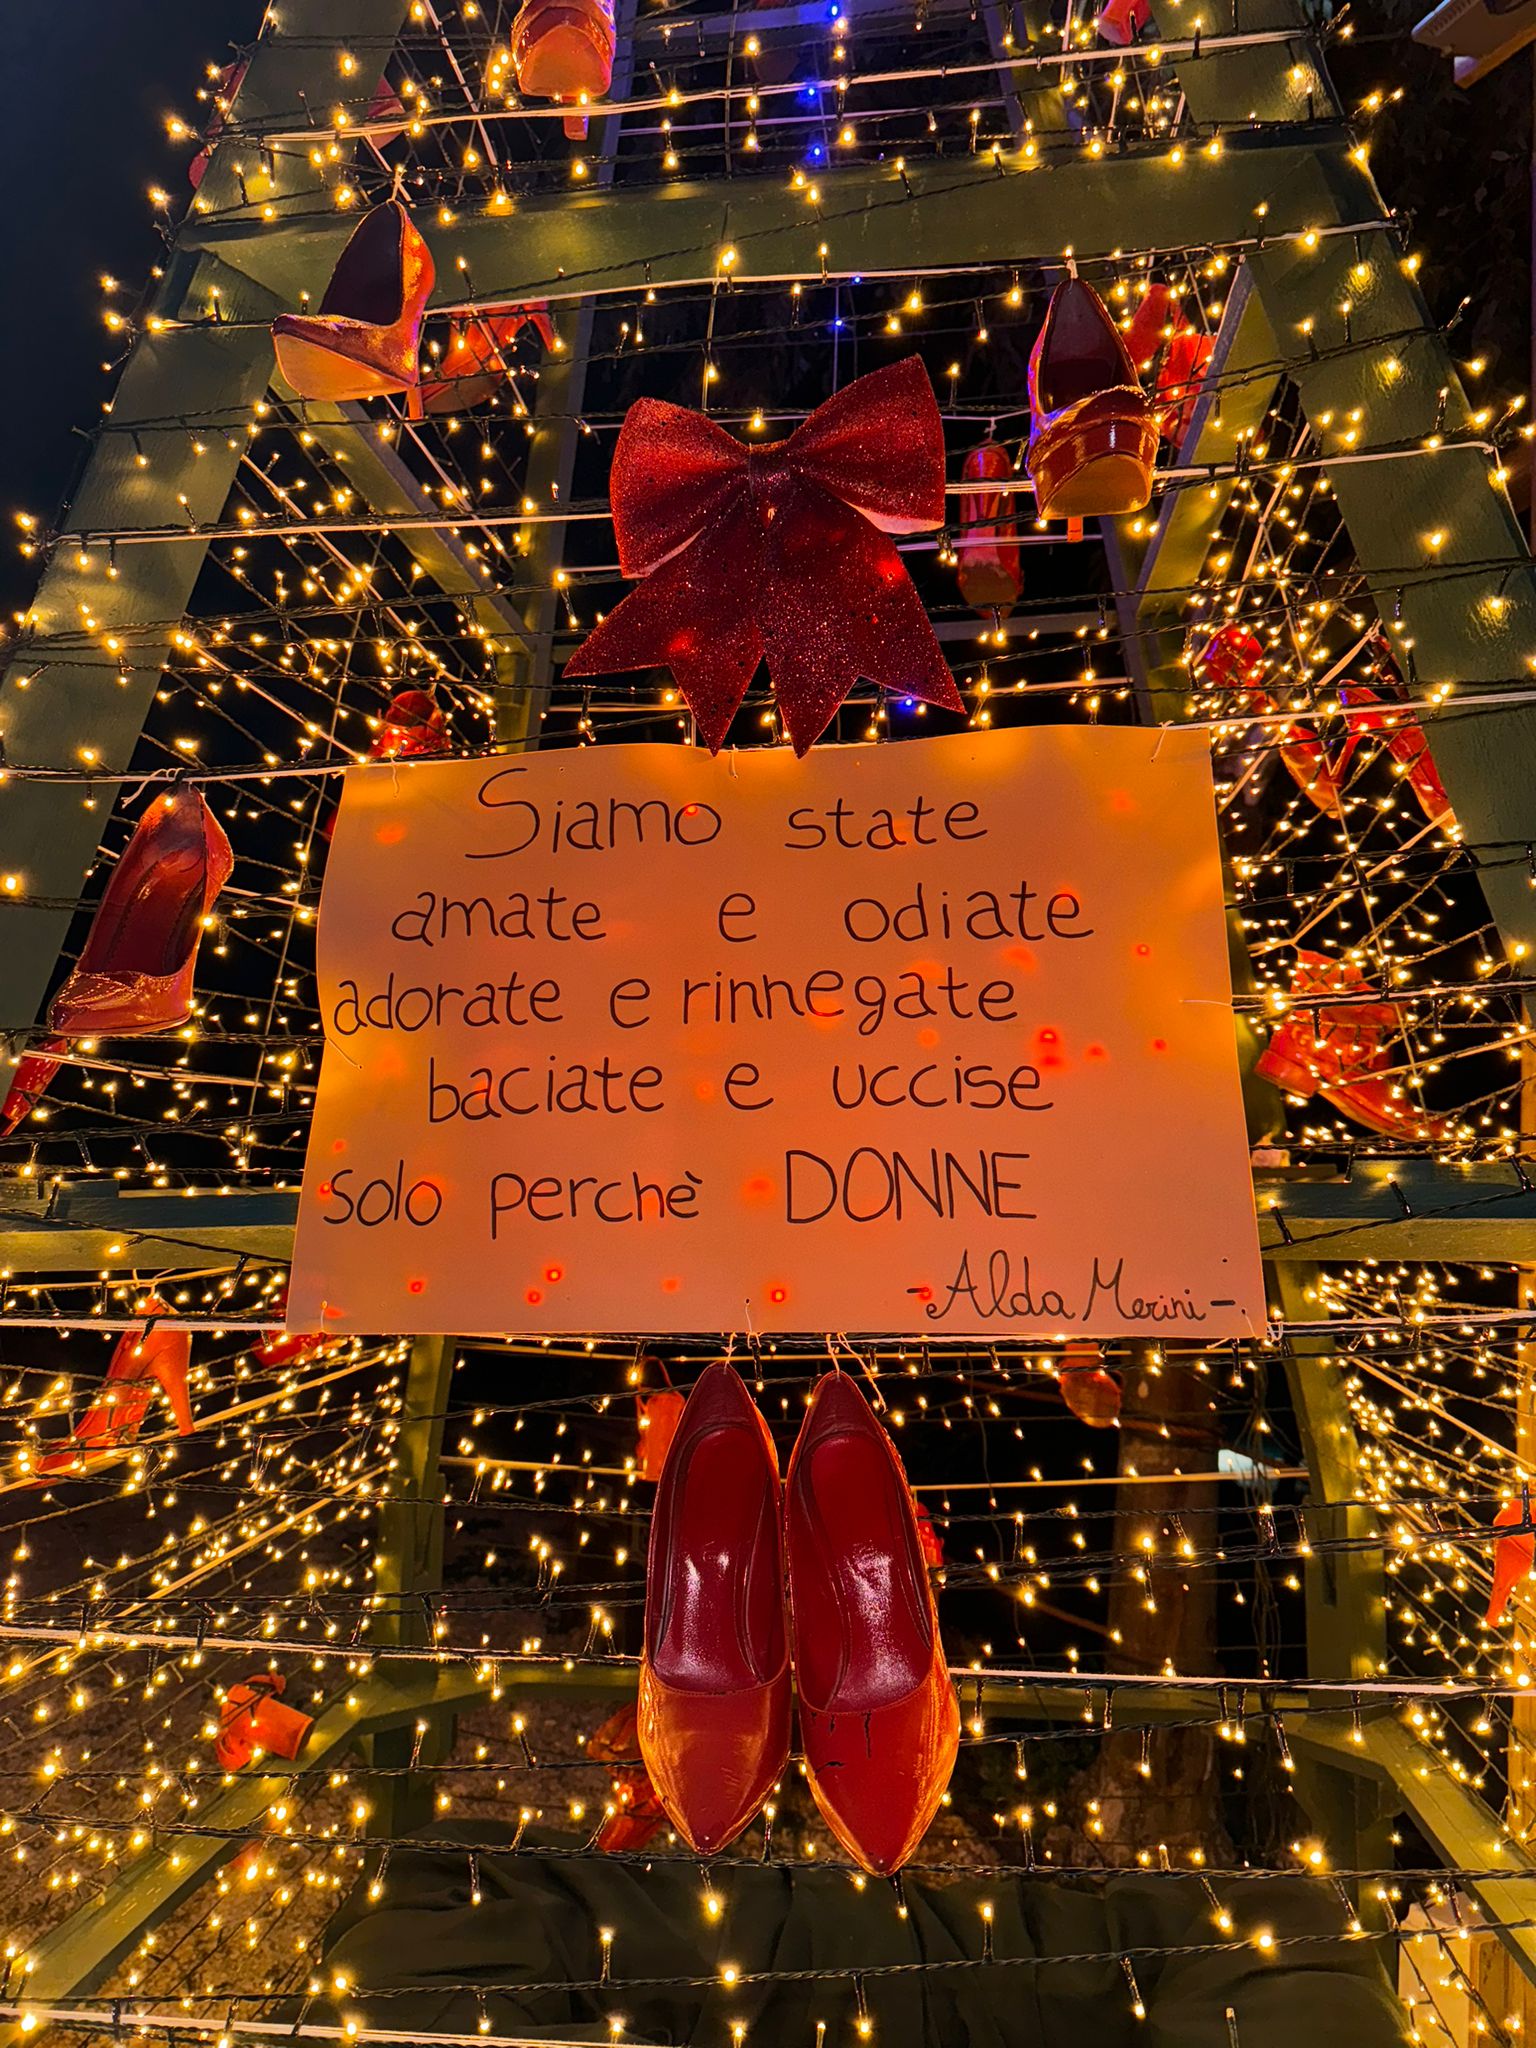 Siamo state
amate e odiate
adorate e rinnegate
baciate e uccise
solo perchè DONNE
-Alda Merini-